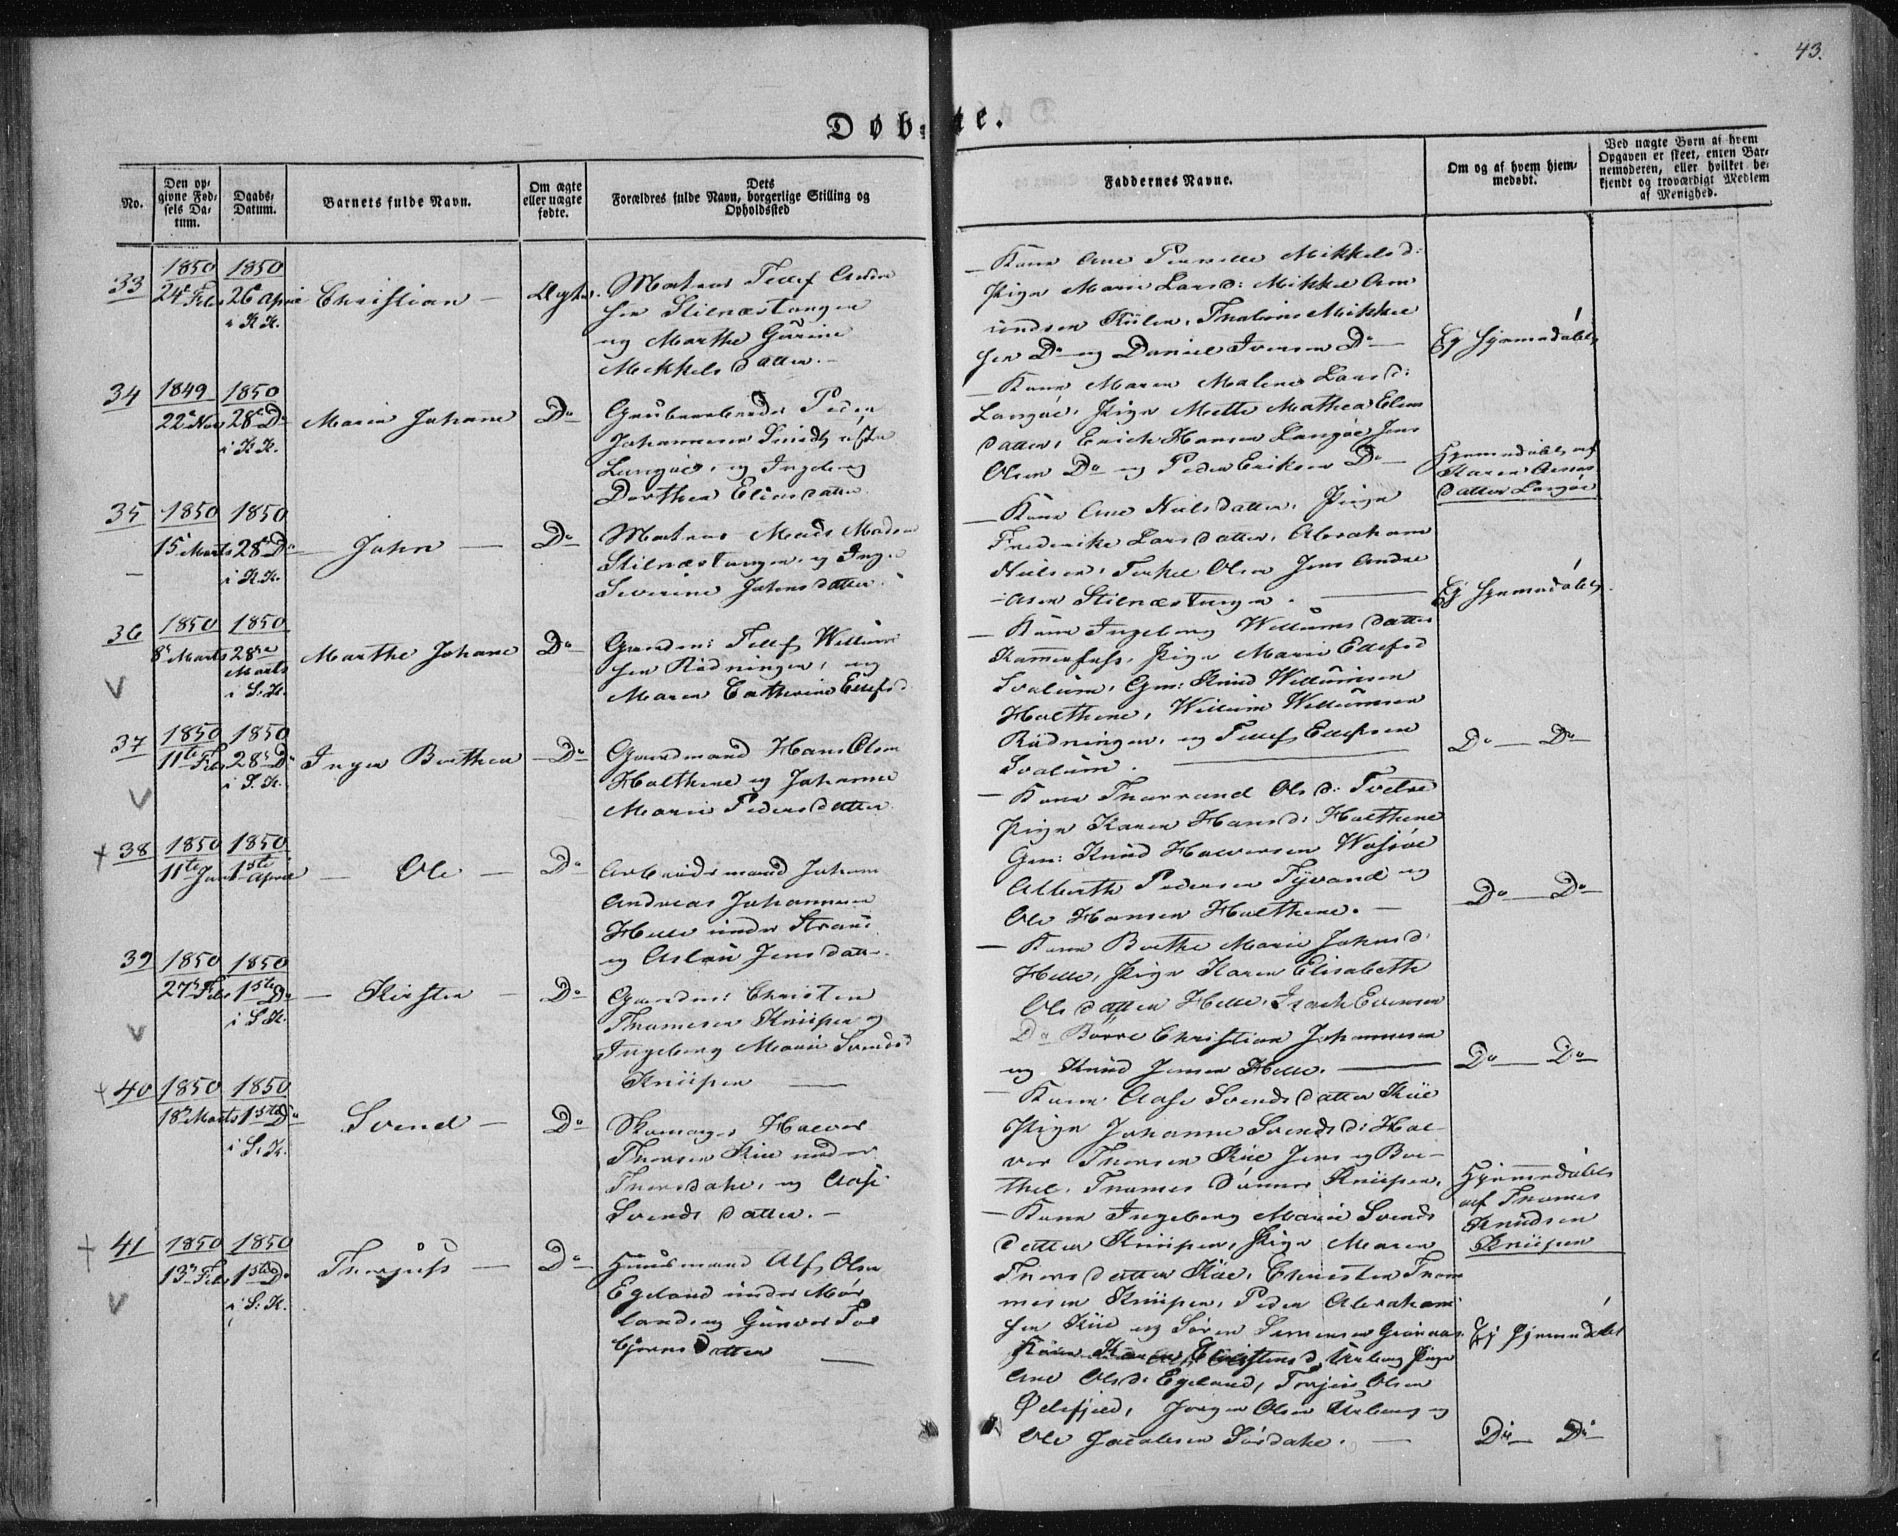 43.
Døbte.
No.
Den op-
givne Fød-
sels Da-
tum.
Daabs-
Datum.
Barnets fulde Navn.
Om ægte
eller uægte
fødte.
Dets
Forældres fulde Navn, borgerlige Stilling og
Opholdssted
Faddernes Navne.
Om og af hvem hjem-
medøbt.
Ved uægte Børn af hvem
Opgaven er skeet, enten Bar-
nemoderen, eller hvilket be-
kjendt og troværdigt Medlem
af Menighed.
33
1850
24 Feb
1850
26 April
i K.K.
Christian
Ægte
Matros Tellef Anden
sen Stilnæstangen
og Marthe Gurine
Mikkelsdatter.
Kone Ane Pernille Mikkelsd:
Pige Marie Larsd: Mikkel Am
undsen Kiilen, Mikkel
sen Do og Daniel Iversen Do
Ej hjemmedøbt
34
1849
22 Nov
1850
28 Do
i K.K.
Maren Johane
Do
Peder
Johannesen
Langøe, og Ingeborg
Dorthea Eliasdatter
Kone Maren Malene Larsd:
Langøe, Pige Mette Mathea Elias
datter, Erich Hansen Langøe Jens
Olsen Do og Peder Eriksen Do
Hjemmedøbt af
Karen Aanas
datter Langøe
35
1850
15 Marts
1850
28 Do
i K.K.
John
Do
Matros Mads Madsen
Stilnæstangen og Inger
Severine Johnsdatter
Kone Ane Nielsdatter, Pige
Frederikke Larsdatter, Abraham
Nielsen, Terkel Olsen Jens Andre
asen Stilnæstangen.
Ej hjemmedøbt.
36
1850
8 Marts
1850
28de
Marts
i S.K.
Marthe Johane
Do
Gaardm: Tellef Willum
sen Rødningen, og
Maren Cathrine Ellefsd
Kone Ingeborg Willumsdatter
Kammerfos, Pige Marie Ellefsd
Svalum, Gm: Knud Willumsen
Holthene, Willum Willumsen
Rødningen, og Tellef Ellefsen
Svalum.
Do Do
37
1850
11te Feb
1850
28 Do
i S.K.
Inger Berthea
Do
Gaardmand Hans Olsen
Holthene og Johanne
Marie Pedersdatter
Kone Olsd: Tveter
Pige Karen Hansd: Holthene
Gm: Knud Halvorsen Vasjøe
Alberth Pedersen Tyvand og
Ole Hansen Holthene.
Do Do
38
1850
11te Jan
1850
1ste April
Ole
Do
Arbeidsmand Johan
Andreas Johannesen
Helle under
og Aslau Jensdatter.
Kone Berthe Marie Johnsd:
Helle, Pige Karen Elisabeth
Olsdatter Helle, Isach Evensen
Do Børre Christian Johannesen
og Knud Jensen Helle.
Do Do
39
1850
27 Feb
1850
1ste Do
i S.K.
Kirsten
Do
Gaardm: Christen
Thomesen Kniipen og
Ingeborg Marie Svendsd
Kniipen
Kone Aase Svendsdatter Kiie
Pige Johanne Svendsd: Hal
vor Thorsen Kiie Jens og Ber
thel Thomes Sønner Kniipen.
Hjemmedøbt
af Thomes
Knudsen
Kniipen
40
1850
18 Marts
1850
1ste Do
i S.K.
Svend
Do
Skomager Halvor
Thorsen Kiie under
Thorsdale, og Aase
Svendsdatter.
Kone Ingeborg Marie Svends
datter Kniipen, Pige Maren
Thorsdatter Kiie, Christen Thom
mesen Kniipen, Peder Abraham
sen Kiie og Søren Simonsen Grønaas
Ej hjemmedøbt
41
1850
13 Feb
1850
1ste Do
i S.K.
Thorjus
Do
Huusmand Alf Olsen
Egeland under Mør
land og Gunvor Tor
bjørnsdatter
Kone Karen Christensd Pige
Ane Olsd: Egeland, Torjus Olsen
Ødefjeld, Jørgen Olsen og
Ole Jacobsen Sørdahl.
Do Do